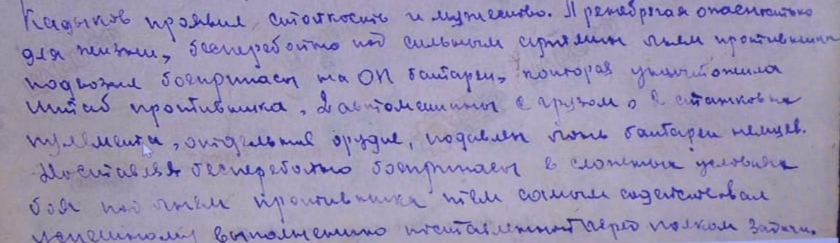 Кадыков проявил стойкость и мужество. Пренебрегая опасностью
для жизни, бесперебойно под сильным огнем противника
подвозил боеприпасы на ОП батареи, которая уничтожила
штаб противника, 2 автомашины с грузом, 2 станковых
пулемета, отдельные орудие, подавлен огонь батареи немцев.
Доставляя бесперебойно боеприпасы в сложных условиях
боя под огнем противника тем самым содействовал
успешному выполнению поставленной перед полком задачи.